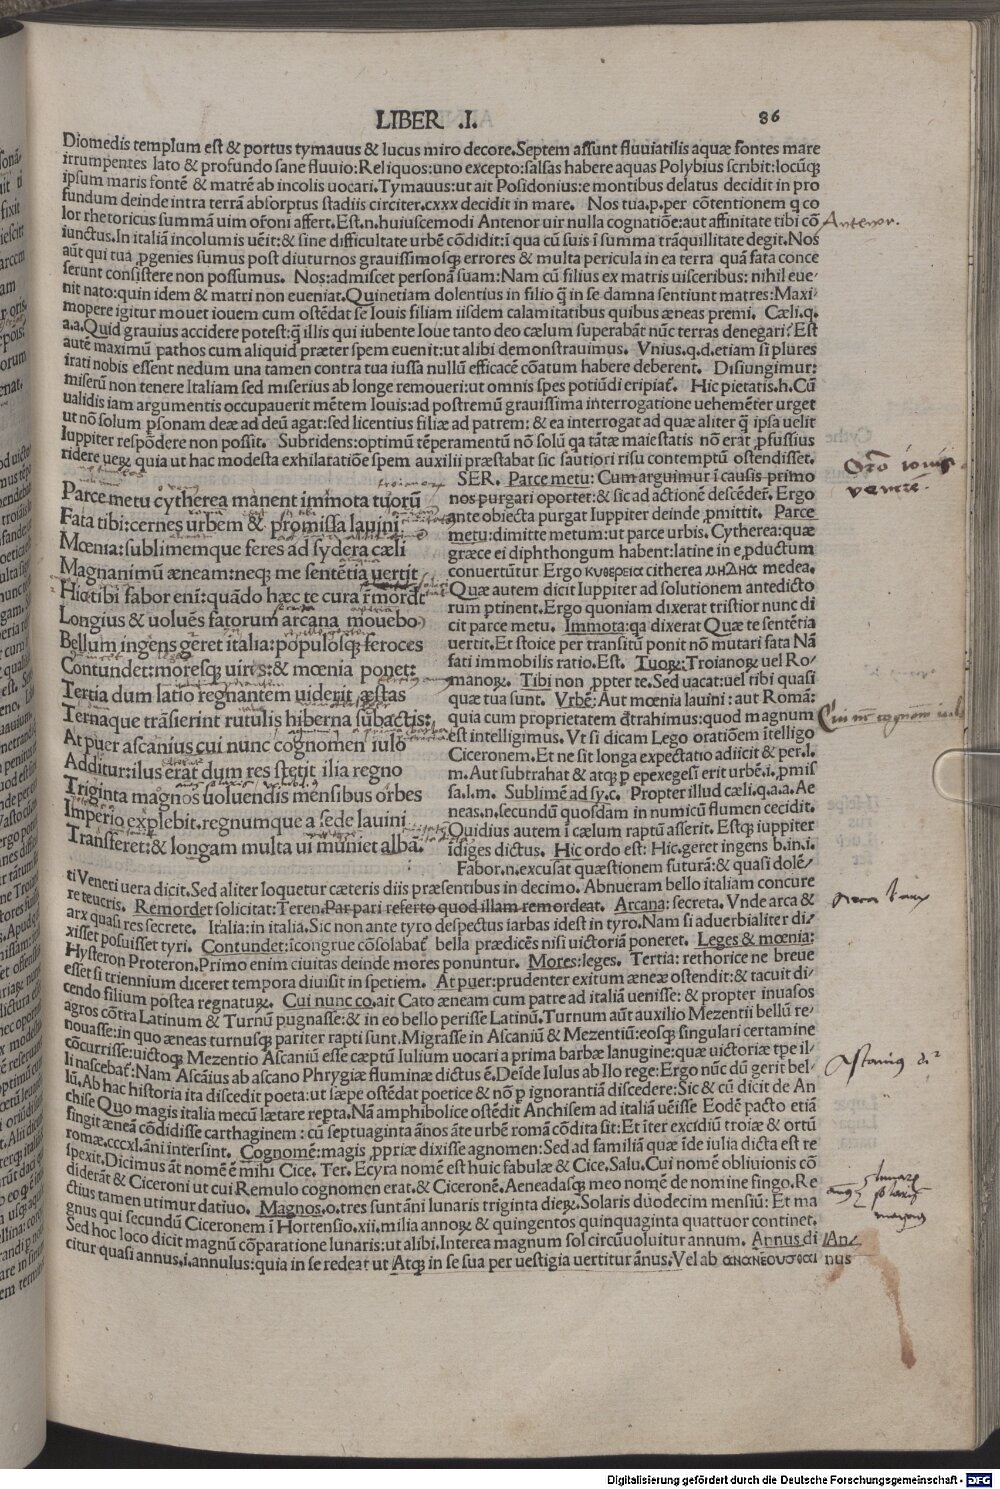 LIBER .I. 86
Diomedis templum est & portus tymauus & lucus miro decore. Septem assunt fluuiatilis aquæ fontes mare
irrumpentes lato & profundo sane fluuio: Reliquos: uno excepto: salsas habere aquas Polybius scribit: locũq;
ipsum maris fontẽ & matrẽ ab incolis uocari. Tymauus: ut ait Posidonius: e montibus delatus decidit in pro
fundum deinde intra terrã absorptus stadiis circiter .cxxx decidit in mare. Nos tua .p. per cõtentionem q̃ co
lor rhetoricus summã uim orõni affert. Est .n. huiuscemodi Antenor uir nulla cognatiõe: aut affinitate tibi cõ
iunctus. In italiã incolumis uẽit: & sine difficultate urbẽ cõdidit: ĩ qua cũ suis ĩ summa trãquillitate degit. Nos
aũt qui tua ꝓgenies sumus post diuturnos grauissimosq; errores & multa pericula in ea terra quã fata conce
serunt consistere non possumus. Nos: admiscet personã suam: Nam cũ filius ex matris uisceribus: nihil eue⸗
nit nato: quin idem & matri non eueniat. Quinetiam dolentius in filio q̃ in se damna sentiunt matres: Maxi⸗
mopere igitur mouet iouem cum ostẽdat se Iouis filiam iisdem calamitatibus quibus æneas premi. Cæli .q.
a.a. Quid grauius accidere potest: q̃ illis qui iubente Ioue tanto deo cælum superabãt nũc terras denegari? Est
autẽ maximũ pathos cum aliquid præter spem euenit: ut alibi demonstrauimus. Vnius .q.d. etiam si plures
irati nobis essent nedum una tamen contra tua iussa nullũ efficacẽ cõatum habere deberent. Disiungimur:
miserũ non tenere Italiam sed miserius ab longe remoueri: ut omnis spes potiũdi eripiat̃. Hic pietatis .h. Cũ
ualidis iam argumentis occupauerit mẽtem Iouis: ad postremũ grauissima interrogatione uehemẽter urget
ut nõ solum ꝑsonam deæ ad deũ agat: sed licentius filiæ ad patrem: & ea interrogat ad quæ aliter q̃ ipsa uelit
Iuppiter respõdere non possit. Subridens: optimũ tẽperamentũ nõ solũ qa tãtæ maiestatis nõ erat ꝓfussius
ridere ueꝝ quia ut hac modesta exhilaratiõe spem auxilii præstabat sic sautiori risu contemptũ ostendisset.
Parce metu cytherea manent immota tuorũ
Fata tibi: cernes urbem & promissa lauini
Mœnia: sublimemque feres ad sydera cæli
Magnanimũ æneam: neq; me sentẽtia uertit
Hic tibi fabor enĩ: quãdo hæc te cura rẽmordt
Longius & uolués fatorum arcana mouebo
Bellum ingens geret italia: populosq; feroces
Contundet: moresq; uiris: & mœnia ponet:
Tertia dum latio regnantem uiderit æstas
Ternaque trãsierint rutulis hiberna subactis:
At puer ascanius cui nunc cognomen iulo
Additur: ilus erat dum res stetit ilia regno
Triginta magnos uoluendis mensibus orbes
Imperio explebit. regnumque a sede lauini
Transferet: & longam multa ui muniet albã.
SER. Parce metu: Cum arguimur ĩ causis primo
nos purgari oportet: & sic ad actionẽ descẽder̃. Ergo
ante obiecta purgat Iuppiter deinde ꝓmittit. Parce
metu: dimitte metum: ut parce urbis. Cytherea: quæ
græce ei diphthongum habent: latine in e ꝓductum
conuertũtur Ergo κυθερεια citherea μηδηα medea.
Quæ autem dicit Iuppiter ad solutionem antedicto
rum ꝑtinent. Ergo quoniam dixerat tristior nunc di
cit parce metu. Immota: qa dixerat Quæ te sentẽtia
uertit. Et stoice per transitũ ponit nõ mutari fata Nã
fati immobilis ratio. Est. Tuoꝝ: Troianoꝝ uel Ro⸗
manoꝝ. Tibi non ꝓpter te. Sed uacat: uel tibi quasi
quæ tua sunt. Vrbẽ: Aut mœnia lauini: aut Romã:
quia cum proprietatem dtrahimus: quod magnum
est intelligimus. Vt si dicam Lego oratiõem ĩtelligo
Ciceronem. Et ne sit longa expectatio adiicit & per .l.
m. Aut subtrahat & atq; ꝑ epexegesĩ erit urbẽ .i. ꝓmis
sa .l.m. Sublimẽ ad sy.c. Propter illud cæli .q.a.a. Ae
neas .n. secundũ quosdam in numicũ flumen cecidit.
Ouidius autem ĩ cælum raptũ asserit. Estq; iuppiter
ĩdiges dictus. Hic ordo est: Hic .geret ingens b. in .i.
Fabor .n. excusat quæstionem futurã: & quasi dolẽ⸗
ti Veneri uera dicit. Sed aliter loquetur cæteris diis præsentibus in decimo. Abnueram bello italiam concure
re teucris. Remordet solicitat: Teren. Par pari referto quod illam remordeat. Arcana: secreta. Vnde arca &
arx quasi res secrete. Italia: in italia. Sic non ante tyro despectus iarbas idest in tyro. Nam si aduerbialiter di⸗
xisset posuisset tyri. Contundet: ĩcongrue cõsolabat̃ bella prædicẽs nisi uictoriã poneret. Leges & mœnia:
Hysteron Proteron. Primo enim ciuitas deinde mores ponuntur. Mores: leges. Tertia: rethorice ne breue
esset si triennium diceret tempora diuisit in spetiem. At puer: prudenter exitum æneæ ostendit: & tacuit di⸗
cendo filium postea regnatuꝝ. Cui nunc co. ait Cato æneam cum patre ad italiã uenisse: & propter inuasos
agros cõtra Latinum & Turnũ pugnasse: & in eo bello perisse Latinũ. Turnum aũt auxilio Mezentii bellũ re⸗
nouasse: in quo æneas turnusq; pariter rapti sunt. Migrasse in Ascaniũ & Mezentiũ: eosq; singulari certamine
cõcurrisse: uictoq; Mezentio Ascaniũ esse cæptũ Iulium uocari a prima barbæ lanugine: quæ uictoriæ tpe il⸗
li nascebat̃: Nam Ascãius ab ascano Phrygiæ fluminæ dictus ẽ. Deĩde Iulus ab Ilo rege: Ergo nũc dũ gerit bel⸗
lũ. Ab hac historia ita discedit poeta: ut sæpe ostẽdat poetice & nõ ꝑ ignorantiã discedere: Sic & cũ dicit de An
chise Quo magis italia mecũ lætare repta. Nã amphibolice ostẽdit Anchisem ad italiã uẽisse Eodẽ pacto etiã
fingit æneã cõdidisse carthaginem: cũ septuaginta ãnos ãte urbẽ romã cõdita sit: Et ĩter excidiũ troiæ & ortũ
romæ .cccxl. ãni intersint. Cognomẽ: magis ꝓpriæ dixisse agnomen: Sed ad familiã quæ ĩde iulia dicta est re
spexit. Dicimus ãt nomẽ ẽ mihi Cice. Ter. Ecyra nomẽ est huic fabulæ & Cice. Salu. Cui nomẽ obliuionis cõ
diderãt & Ciceroni ut cui Remulo cognomen erat. & Ciceronẽ. Aeneadasq; meo nomẽ de nomine fingo. Re
ctius tamen utimur datiuo. Magnos .o. tres sunt ãni lunaris triginta dieꝝ. Solaris duodecim mensiũ: Et ma
gnus qui secundũ Ciceronem ĩ Hortensio .xii. milia annoꝝ & quingentos quinquaginta quattuor continet.
Sed hoc loco dicit magnũ cõparatione lunaris: ut alibi. Interea magnum sol circũuoluitur annum. Annus di
citur quasi annus .i. annulus: quia in se redeat ut Atq; in se sua per uestigia uertitur ãnus. Vel ab ανανεουσθαι
An⸗
nus
Antenor.
troianorum
Digitalisierung gefördert durch die Deutsche Forschungsgemeinschaft - DFG